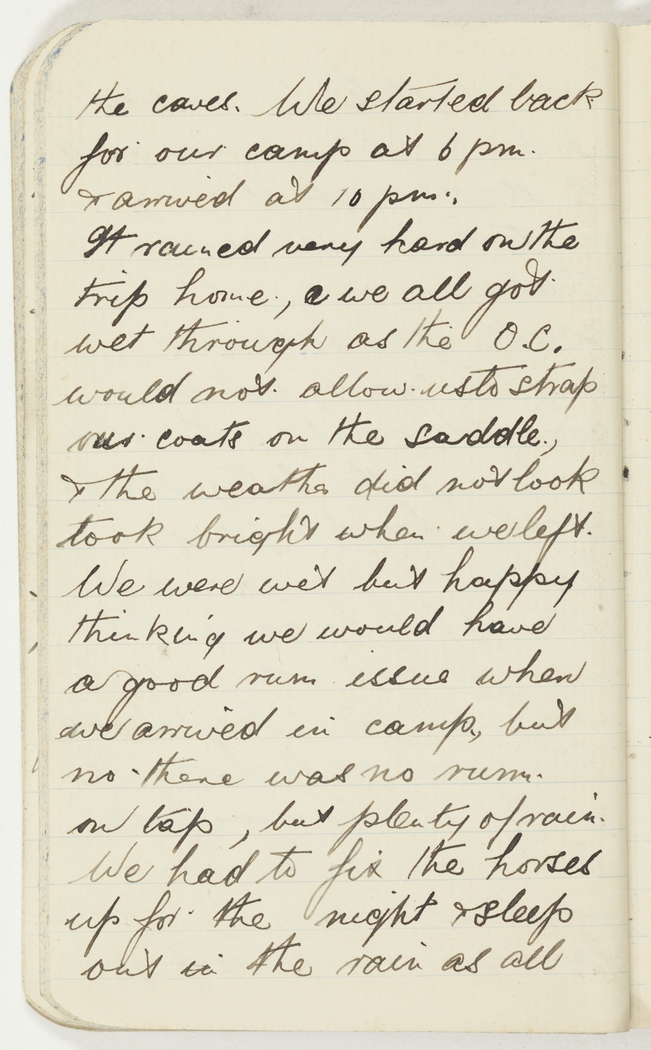 the caves. We started back
for our camp at 6 pm.
& arrived at 10 pm.
It rained very hard on the
trip home, & we all got
wet through as the O.C.
would not allow us to strap
our coats on the saddle,
& the weather did not look
took bright when we left.
We were wet but happy
thinking we would have
a good rum issue when
we arrived in camp, but
no there was no rum
on tap, but plenty of rain.
We had to fix the horses
up for the night & sleep
out in the rain as all